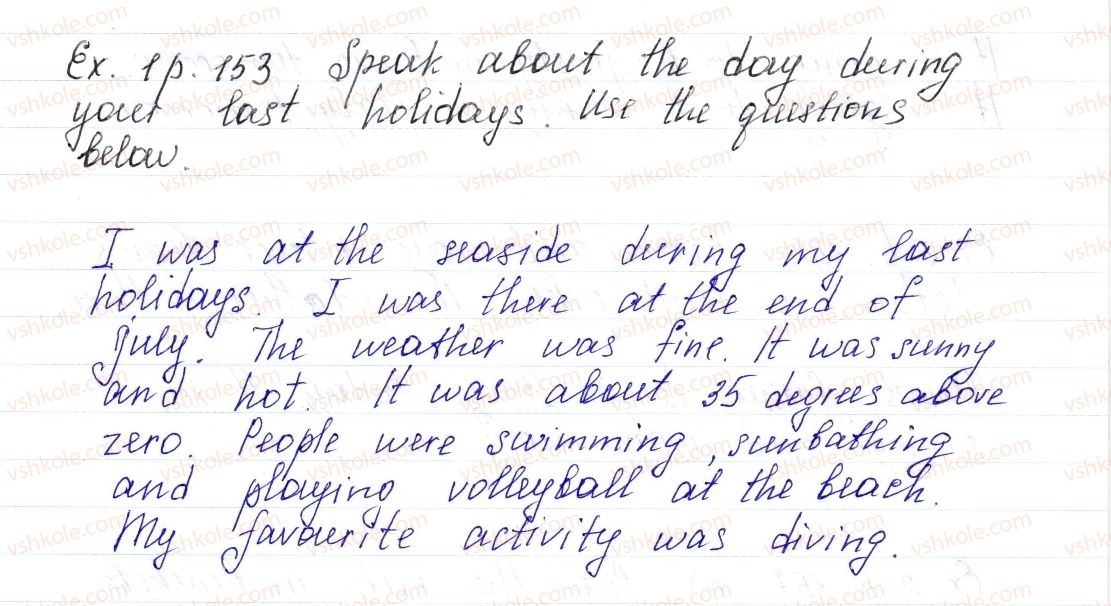 Ex. 1 p. 153 Speak about the day during
your last holidays. Use the questions
below.
I was at the seaside during my last
holidays. I was there at the end of
July. The weather was fine. It was sunny
and hot. It was about 35 degrees above
zero. People were swimming, sunbathing
and playing volleyball at the beach.
My favourite activity was diving.